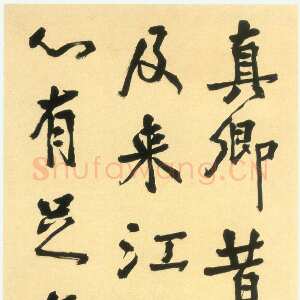 真卿昔
及来江
心有足
Shufawang.CN